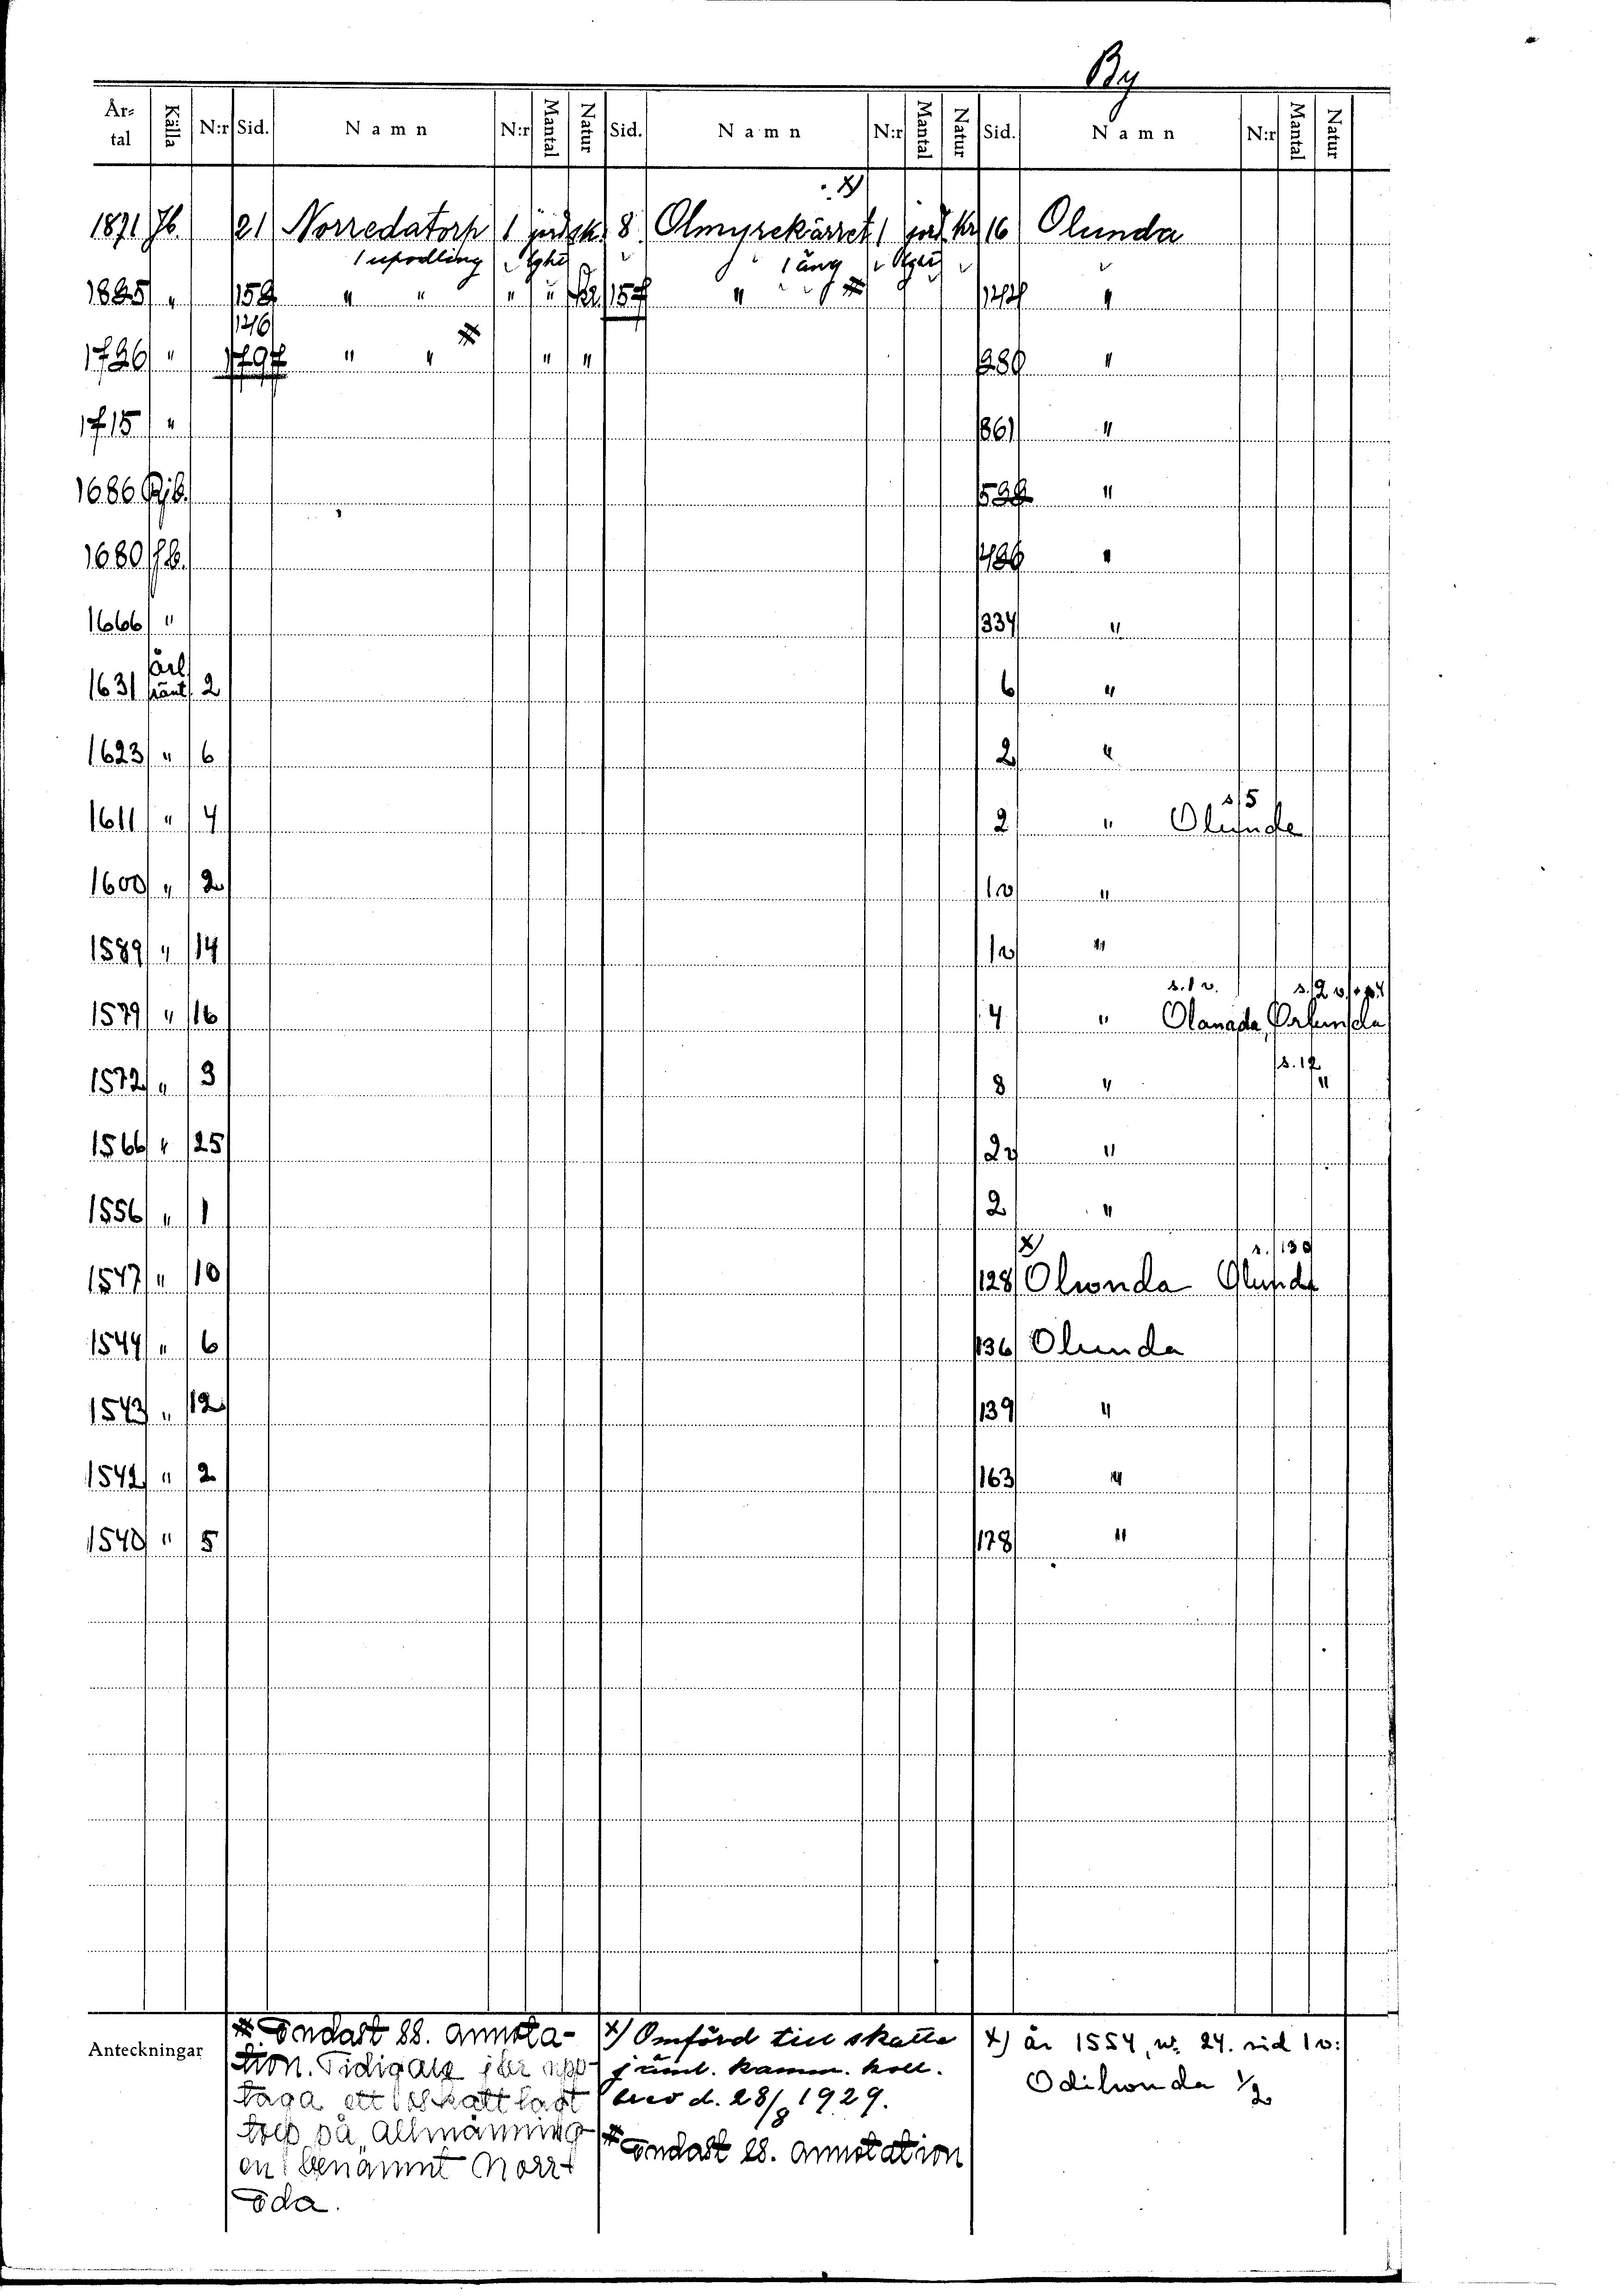 By
År-tal Källa N:r Sid. Namn N:r Mantal Natur Sid. Namn N:r Mantal Natur Sid. Namn N:r Mantal Natur
x)
1871 Jb. 21 Norredatorp 1 jord sk. 8 Olmyrekärret 1 jord kr 16 Olunda
1 upodling lght 1 äng lght
1825 " 152 " " " " kr. 157 " # 1247 "
146 #
1726 " 1797 " " " " 280 "
1715 " 861 "
1686 Rjb. 532 "
1680 Jb. 426 "
1666 " 334 "
årl
1631 ränt. 2 6 "
1623 " 6 2 "
s 5
1611 " 4 2 " Olunde
1600 " 2 1v "
1589 " 14 1v "
s. 1 v. s. 2 v.
1579 " 16 4 " Olanada, Orlunda
s. 12
1572 " 3 8 " "
1566 " 25 2v "
1556 " 1 2 "
x) s. 130
1547 " 10 128 Olsonda Olunda
1544 " 6 136 Olunda
1543 " 12 139 "
1542 " 2 163 "
1540 " 5 178 "
Anteckningar
# Endast ss. annota-
tion. Tidigare jbr upp-
taga ett skattlagt
torp på "Allmänning
en" benämnt Norr
Eda.
x) Omförd till skatte
jäml. kamm. koll.
brev d. 28/8 1929.
# Endast ss. annotation
x) år 1554, nr. 24. sid 1v:
Odihonda 1/2